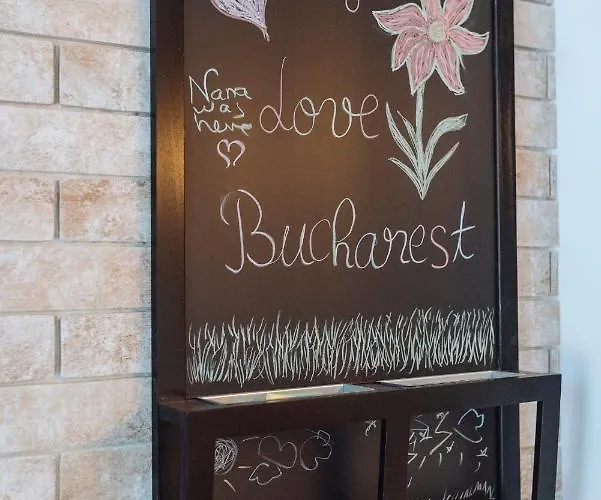 Nana
was
here
Love
Bucharest